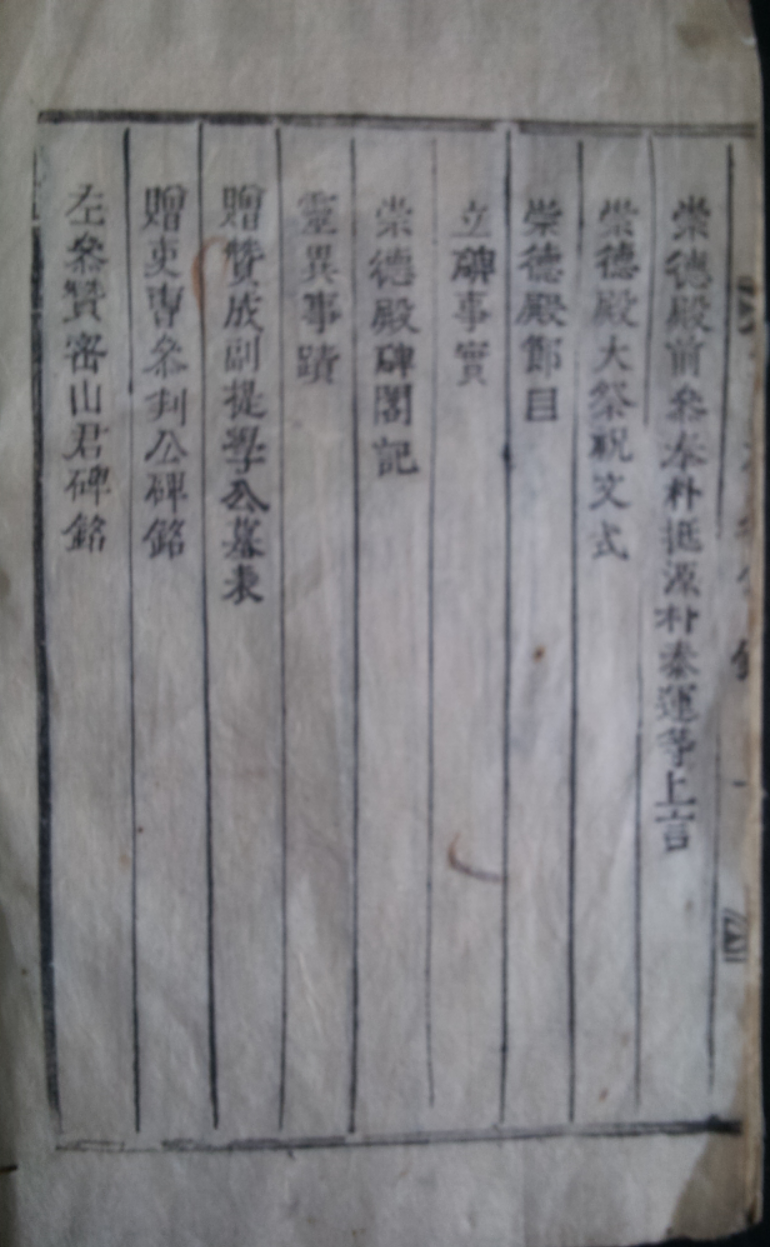 崇德殿前叅奉朴挻源朴泰運等上言
崇德殿大祭祝文式
崇德殿節目
立碑事實
崇德殿碑閣記
靈異事蹟
贈贊成副提學公墓表
贈吏曹叅判公碑銘
左叅贊密山君碑銘